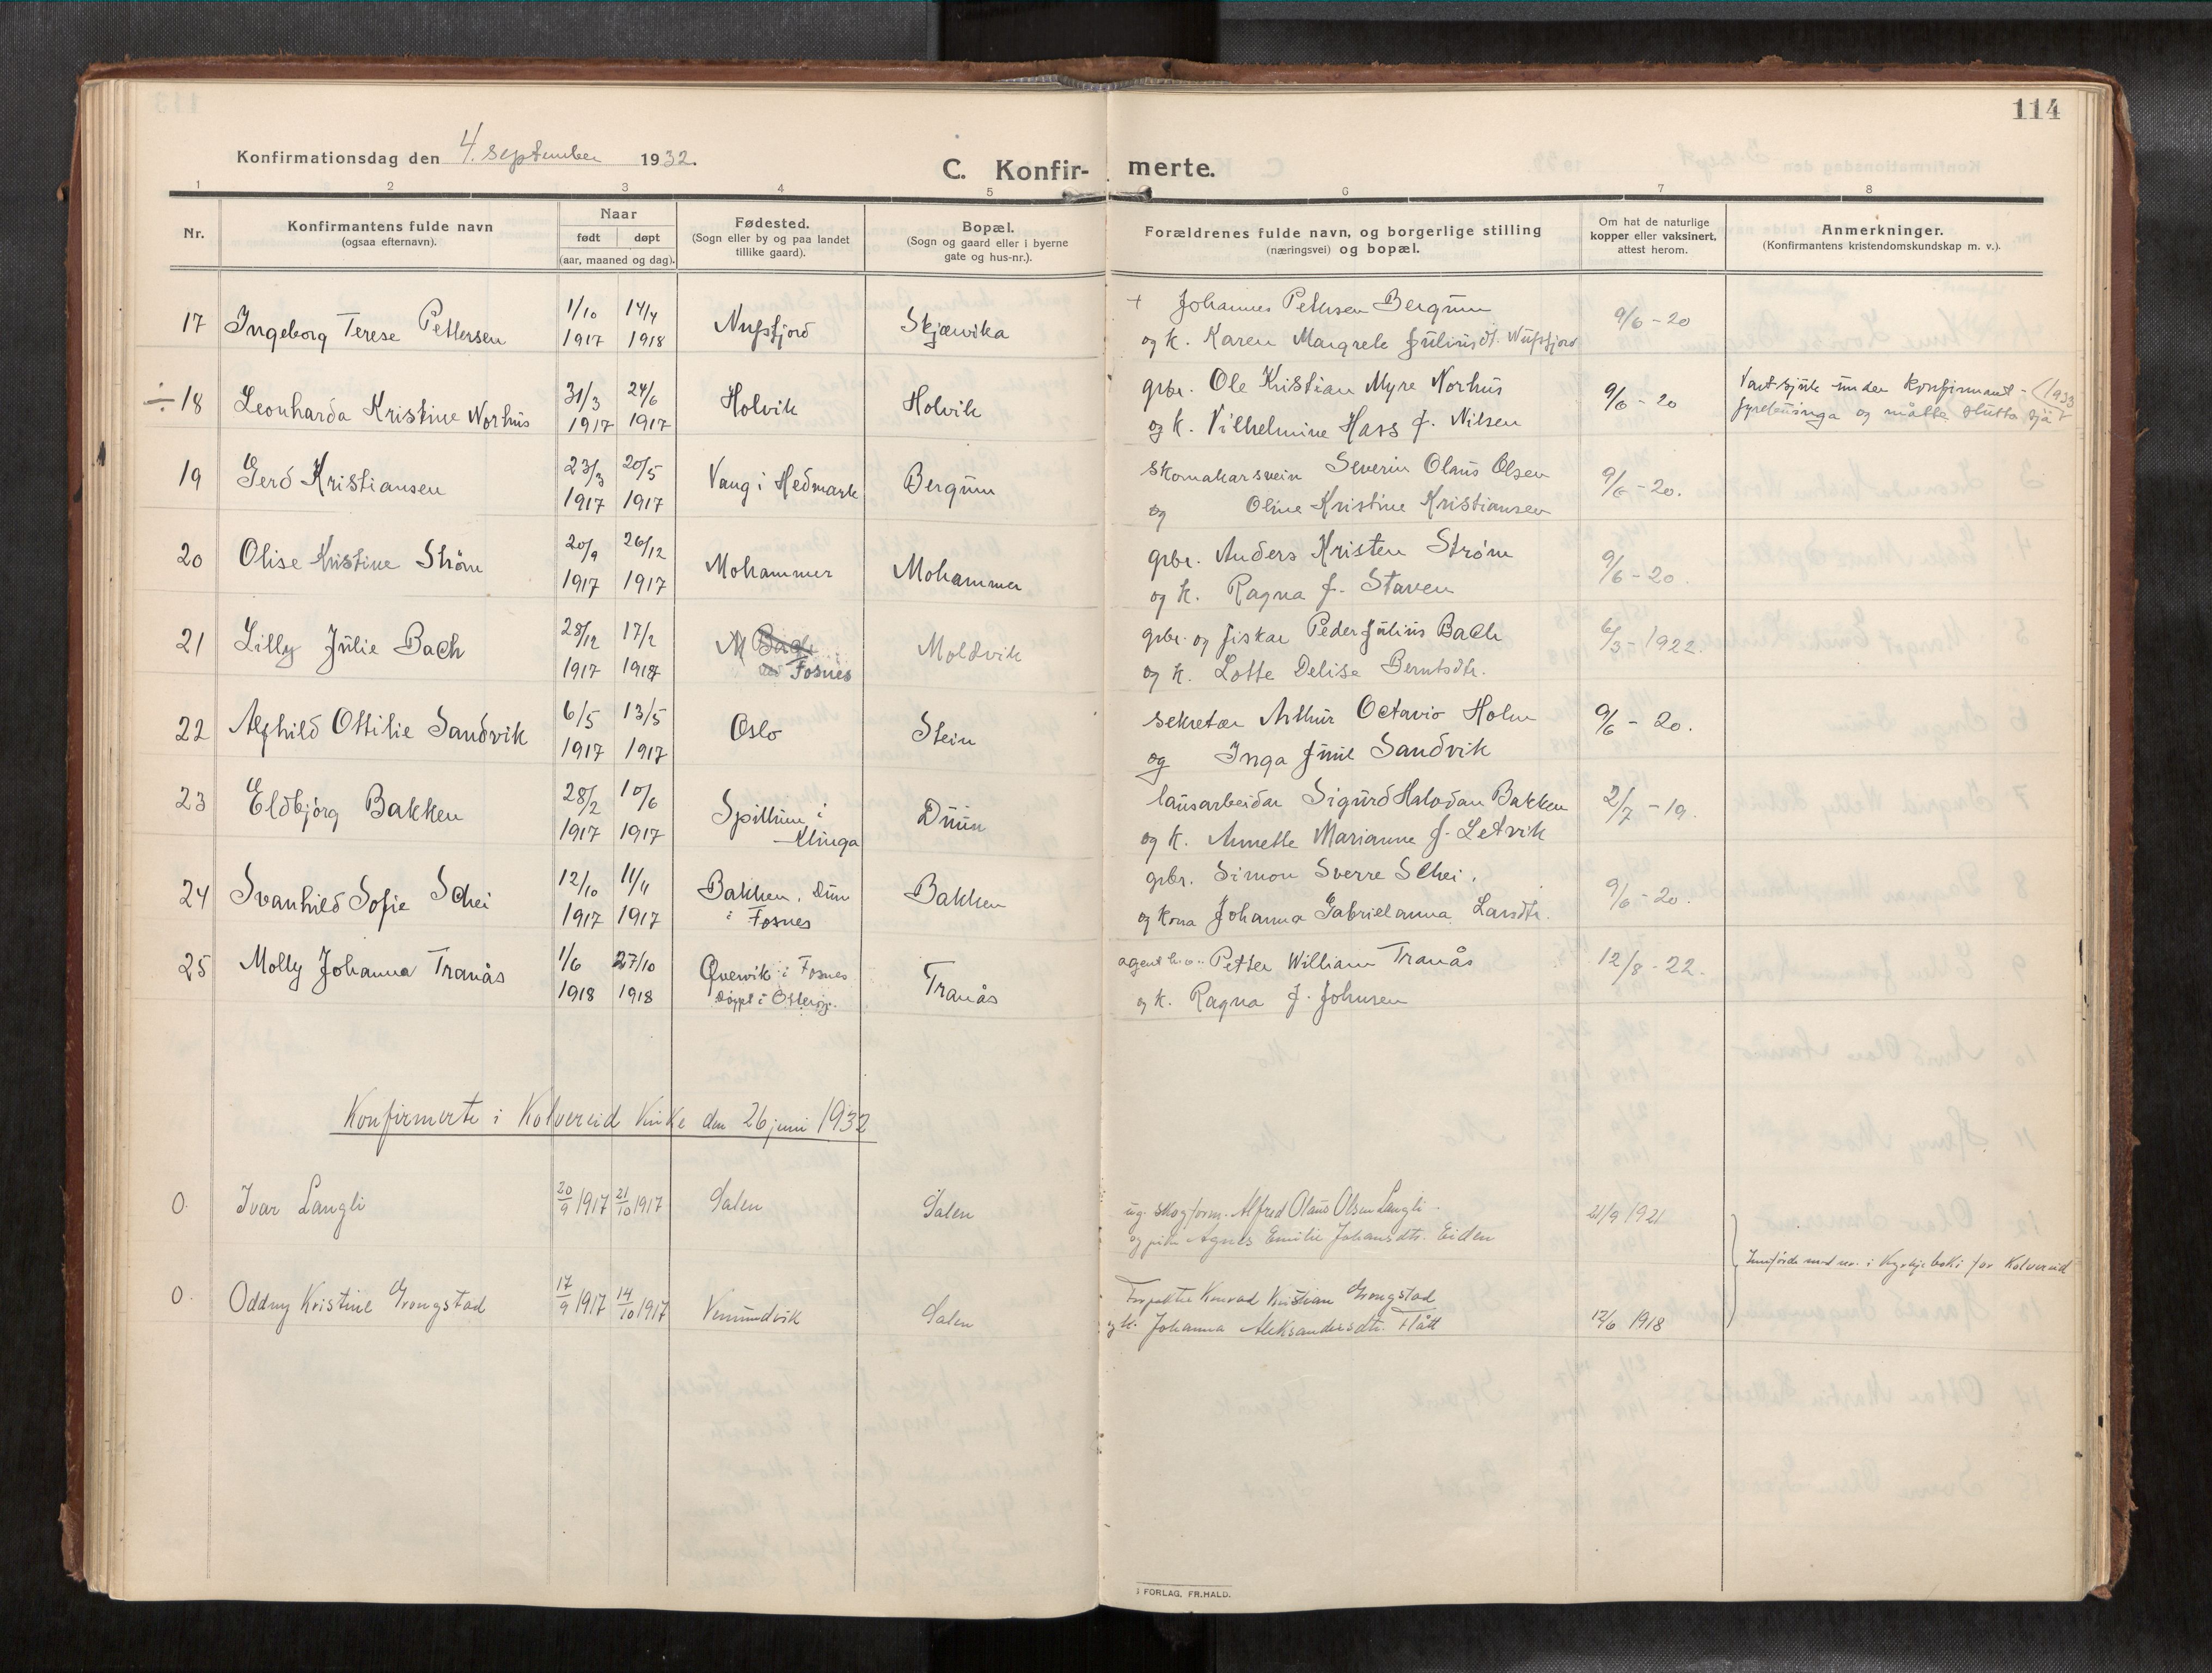 114
Konfirmationsdag den 4. september 1932.
C. Konfir- merte.
1 2 3 4 5 6 7 8
Nr.
Konfirmantens fulde navn
(ogsaa efternavn).
Naar
født døpt
(aar, maaned og dag).
Fødested.
(Sogn eller by og paa landet
tillike gaard).
Bopæl.
(Sogn og gaard eller i byerne
gate og hus-nr.).
Forældrenes fulde navn, og borgerlige stilling
(næringsvei) og bopæl.
Om hat de naturlige
kopper eller vaksinert,
attest herom.
Anmerkninger.
(Konfirmantens kristendomskundskap m. v.).
17 Ingeborg Terese Pettersen 1/10 1917 14/4 1918 Nufsfjord Skjærvika
+ Johannes Petersen Bergum
og k. Karen Margrete Juliusdt. Nufsfjord
9/6 - 20
÷ 18 Leonharda Kristine Norhus 31/3 1917 24/6 1917 Holvik Holvik
grbr. Ole Kristian Myre Norhus
og k. Vilhelmine Hass f. Nilsen
9/6 - 20
Vart sjuk under konfirmant- (1933
fyrebuinga og måtte slutta sjå
19 Gerd Kristiansen 23/3 1917 20/5 1917 Vang i Hedmark Bergum
skomakarsvein Severin Olaus Olsen
og Oline Kristine Kristiansen
9/6 - 20.
20 Olise Kristine Strøm 20/9 1917 26/12 1917 Mohammer Mohammer
grbr. Anders Kristen Strøm
og k. Ragna f. Staven
9/6 - 20.
21 Lilly Julie Bach 28/12 1917 17/2 1918 M Bach Fosnes Moldvik
grbr. og fiskar Peder Julius Bach
og k. Lotte Delise Berntsdtr.
6/3 - 1922.
22 Alfhild Ottilie Sandvik 6/5 1917 13/5 1917 Oslo Stein
sekretær Arthur Octavio Holm
og Inga Juul Sandvik
9/6 - 20.
23 Eldbjørg Bakken 28/2 1917 10/6 1917 Spillum i Klinga Duun
lausarbeidar Sigurd Halvdan Bakken
og k. Annette Marianne f. Letvik
2/7 - 19.
24 Svanhild Sofie Schei 12/10 1917 11/11 1917 Bakken, Duun i Fosnes Bakken
grbr. Simon Sverre Schei.
og kona Johanna Gabrielanna Larsdtr.
9/6 - 20.
25 Molly Johanna Tranås 1/6 1918 27/10 1918 Quervik i Fosnes Døypt i Otterøy. Tranås
agent Petter William Tranås
og k. Ragna f. Johnsen
12/8 - 22.
Konfirmerte i Kolvereid kirke den 26 juni 1932
0. Ivar Langli 20/9 1917 21/10 1917 Salen Salen
ug. skogform. Alfred Olaus Olsen Langli.
og pike Agnes Emilie Johansdtr. Eiden
21/9 1921
Innførde med nr. i kyrkjeboki for Kolvereid
0. Oddny Kristine Grongstad 17/9 1917 14/10 1917 Vemundvik Salen
Forpakter Konrad Kristian Grongstad
og k. Johanna Aleksandersdtr. Flått
12/6 1918
FORLAG. FR.HALD.